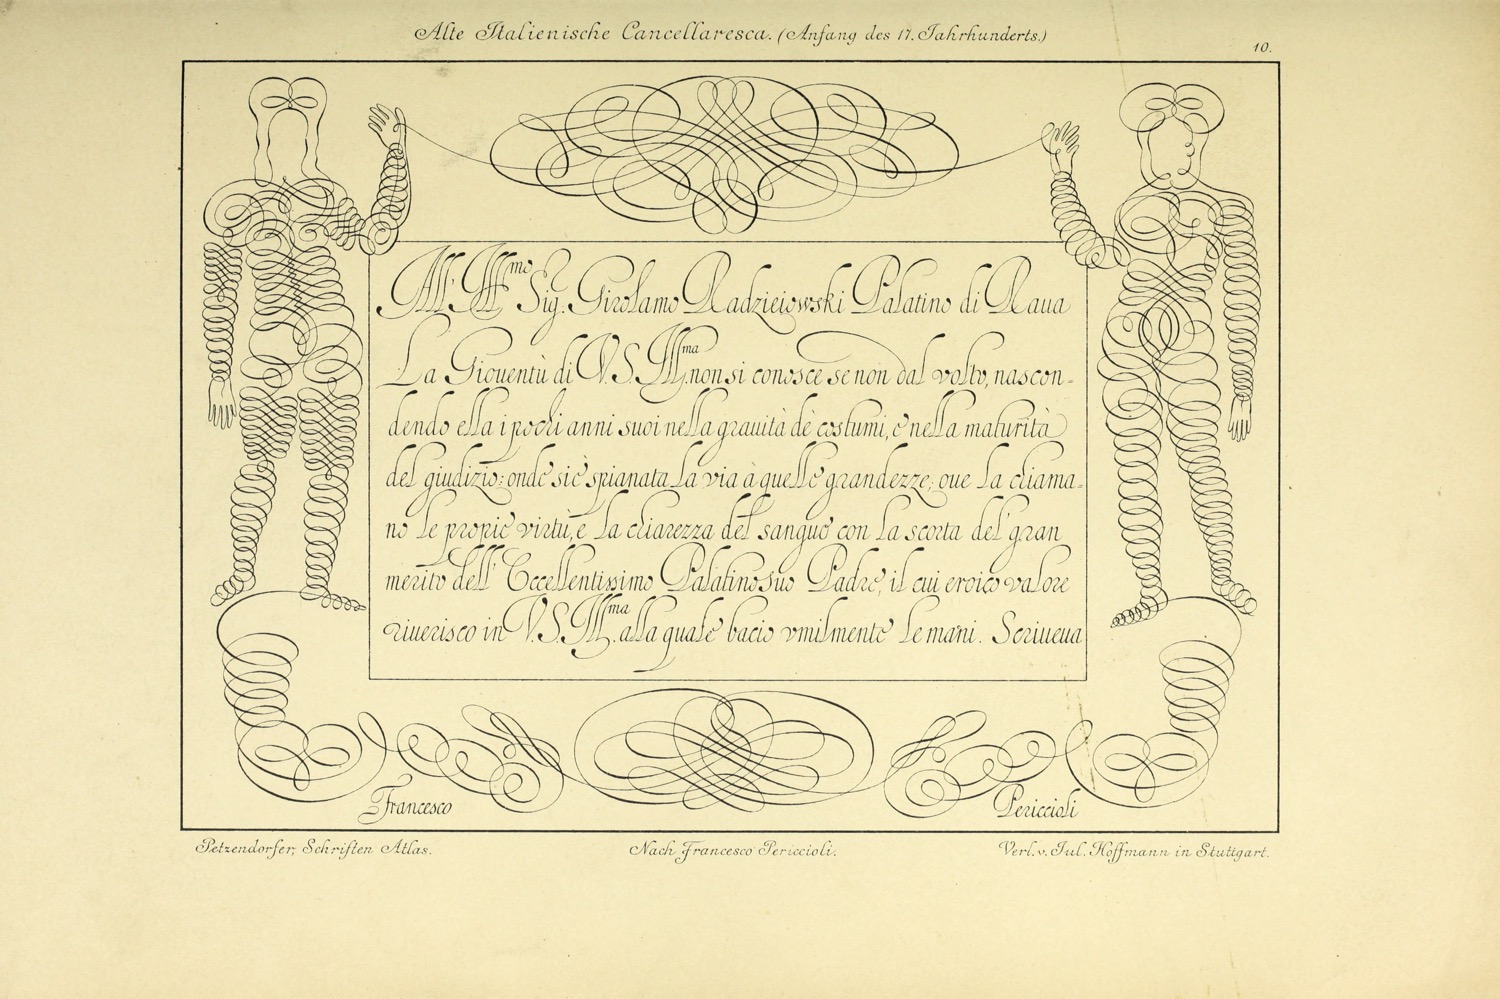 Alte Italienische Cancellaresca. (Anfang des 17. Jahrhunderts.)
10.
All' Ill.mo Sig. Girolamo Radzieiowski Palatino di Raua
La Giouentù di V. S. Ill.ma non si conosce se non dal volto, nascon-
dendo ella i pochi anni suoi nella grauità de costumi, e nella maturità
del giudizio: onde si è spianata la via à quelle grandezze, oue la chiama-
no le propie virtù, e la chiarezza del sangue con la scorta del gran
merito dell' Eccellentissimo Palatino suo Padre, il cui eroico valore
riuerisco in V. S. Ill.ma alla quale bacio vmilmente le mani. Scriueua
Francesco
Periccioli
Petzendorfer, Schriften Atlas.
Nach Francesco Periccioli.
Verl. v. Jul. Hoffmann in Stuttgart.